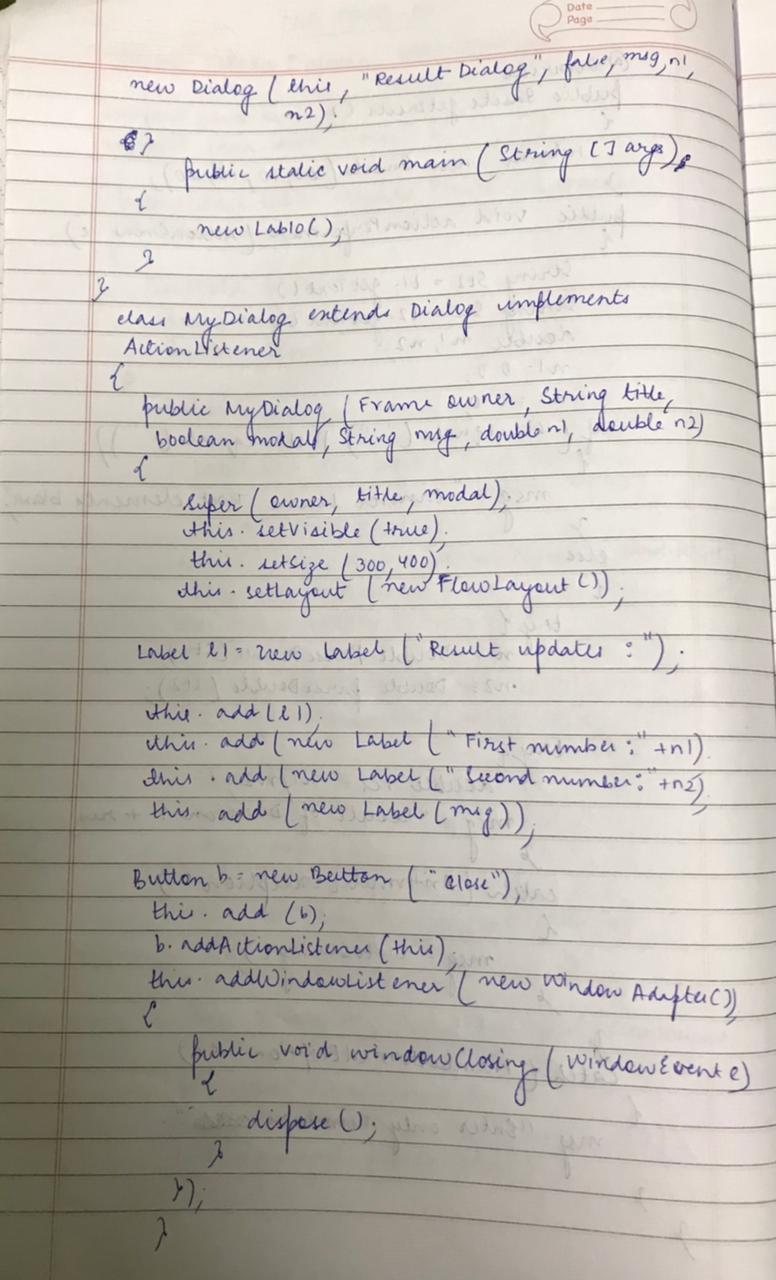 Date
Page
new Dialog ( this , "Result Dialog", false, msg, n1,
n2);
}
public static void main ( String [] args),
{
new Lab10();
}
}
class MyDialog extends Dialog implements
ActionListener
{
public MyDialog ( Frame owner, String title,
boolean modal, String msg, double n1, double n2)
{
super ( owner, title, modal);
this. setVisible (true);
this. setSize (300, 400).
this. setLayout (new FlowLayout ());
Label l1 = new Label ("Result updates : ");
this. add (l1);
this. add (new Label ( " First number : " +n1)
this . add ( new Label ( " Second number : " +n2),
this. add ( new Label ( msg));
Button b = new Button ( "close");
this. add (b);
b. addActionListener (this);
this. addWindowListener ( new Window Adapter())
{
public void windowClosing ( WindowEvent e)
{
dispose ();
}
});
}